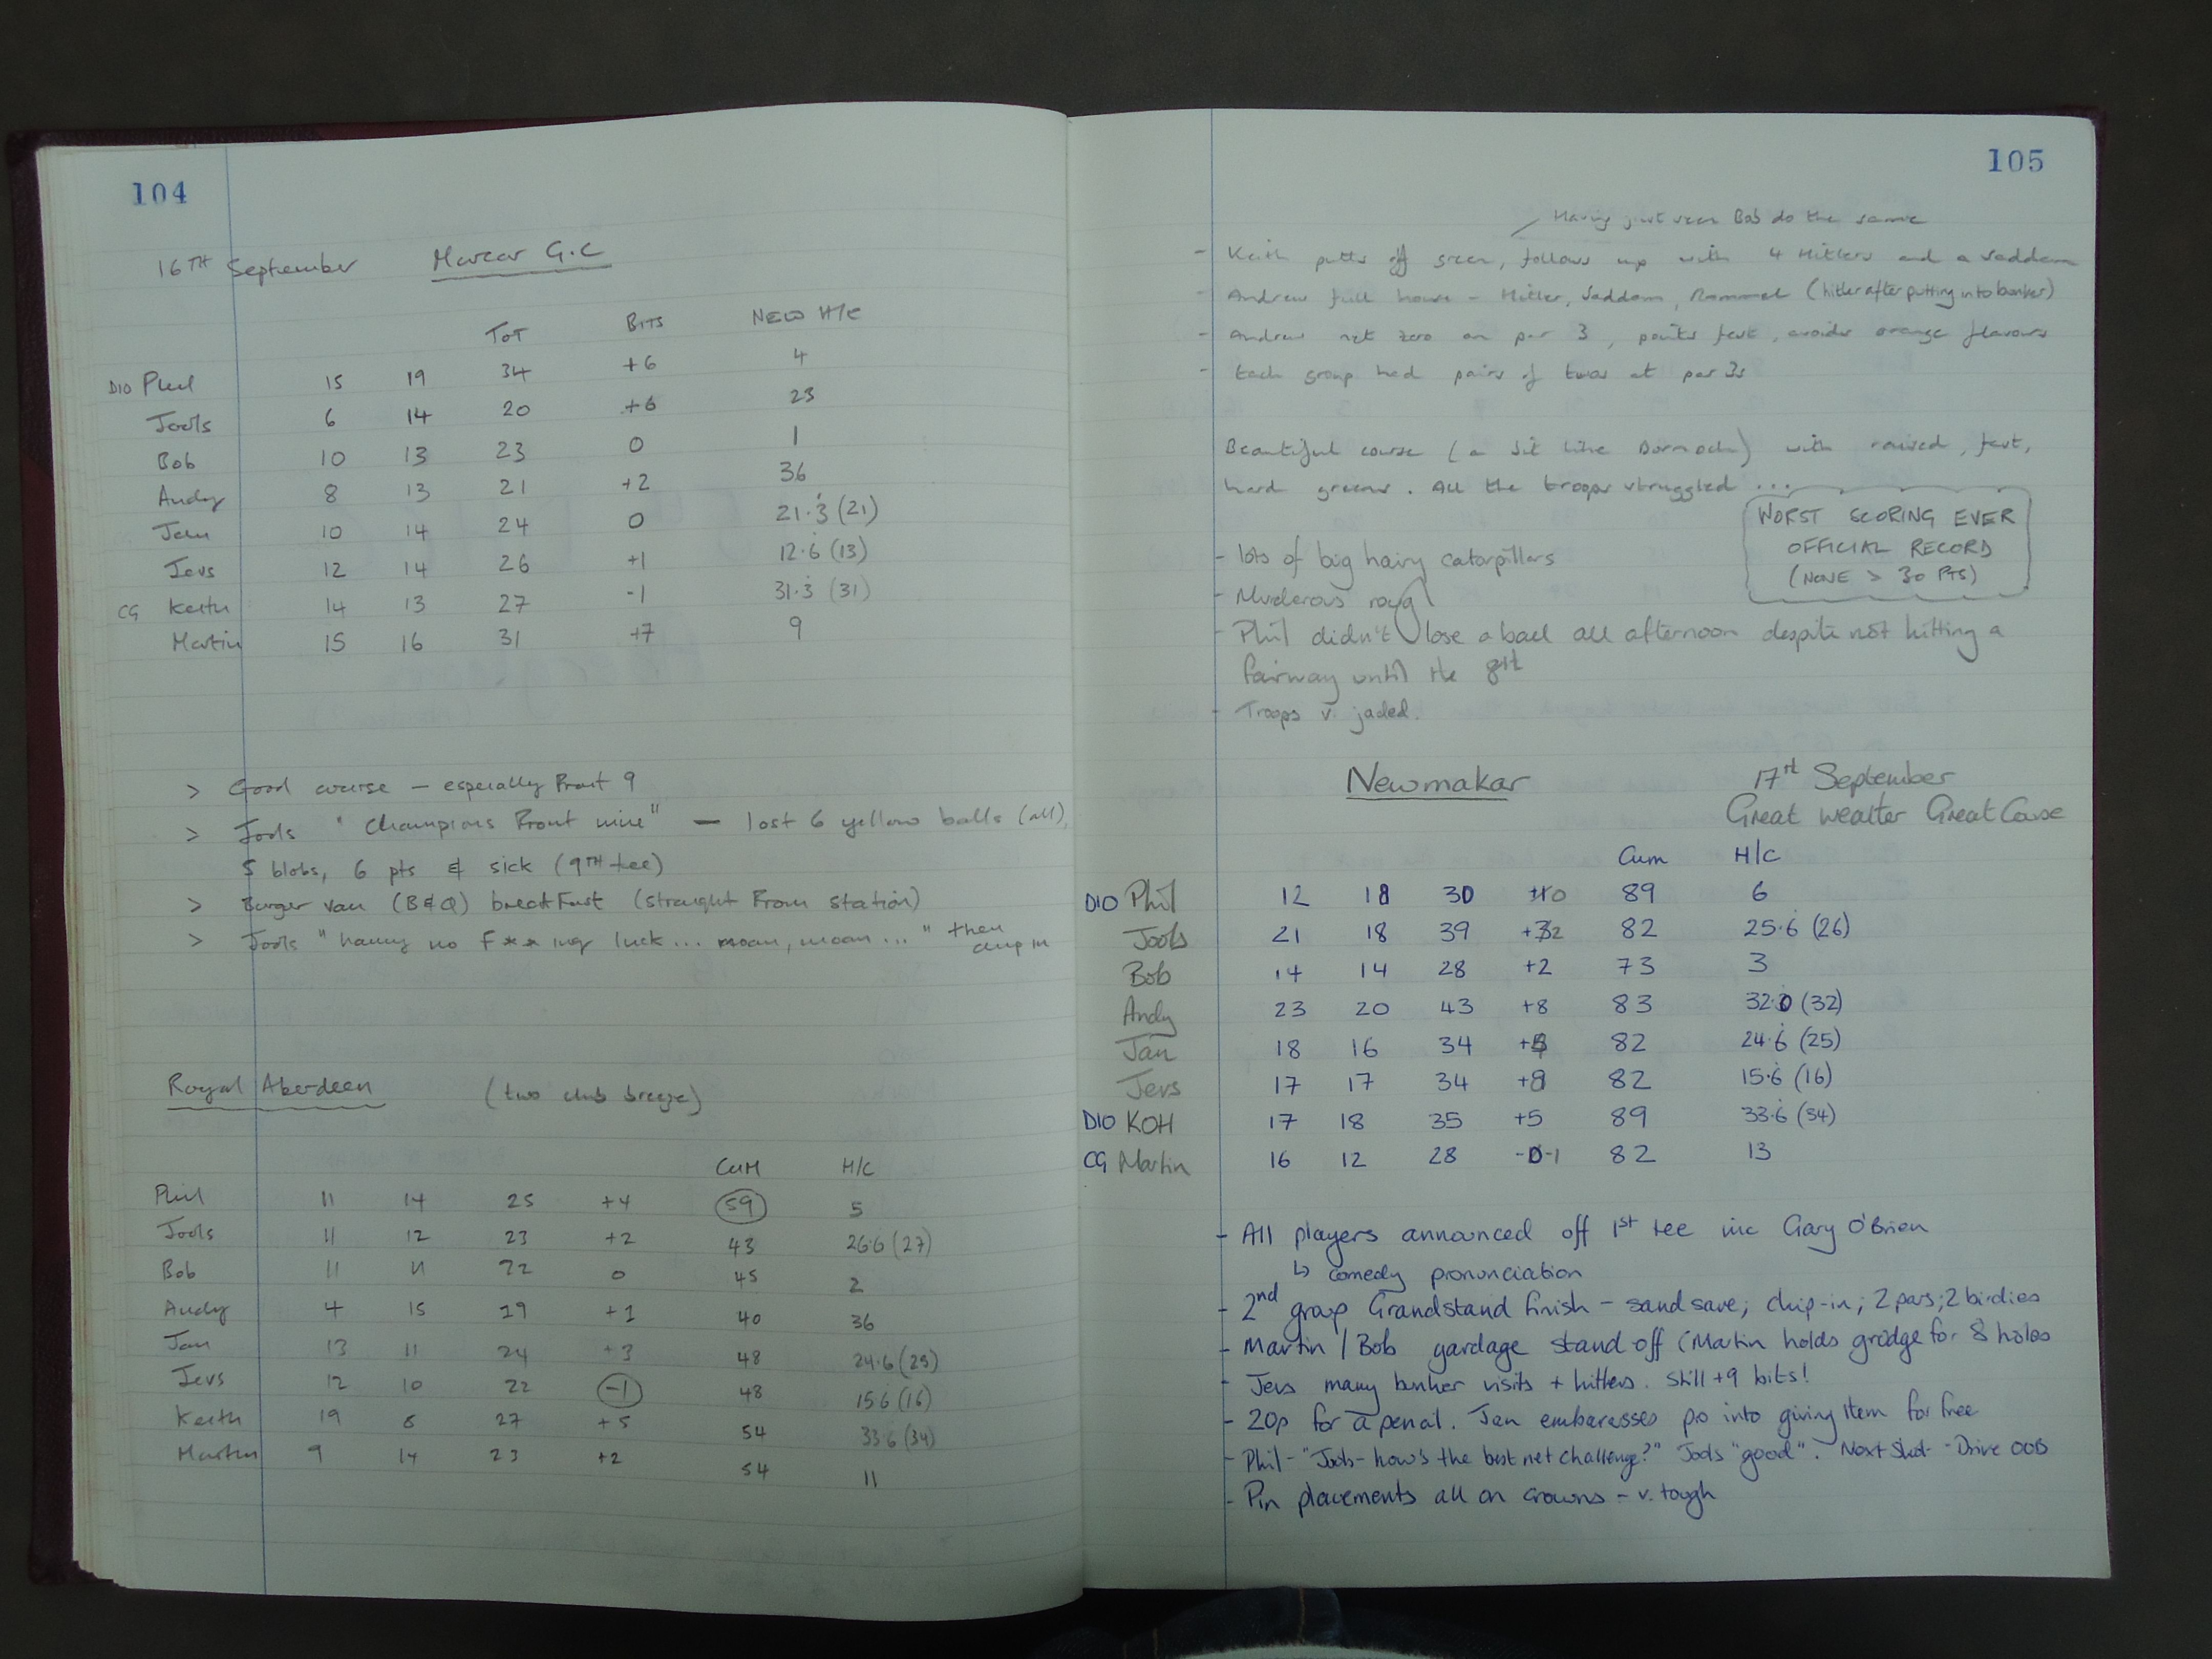 104
16TH September Murcar G.C
TOT BITS NEW H/C
DIO Phil 15 19 34 +6 4
Jools 6 14 20 +6 23
Bob 10 13 23 0 1
Andy 8 13 21 +2 36
Jan 10 14 24 0 21.3 (21)
Jevs 12 14 26 +1 12.6 (13)
CG Keith 14 13 27 -1 31.3 (31)
Martin 15 16 31 +7 9
> Good course - especially Front 9
> Jools "Champions Front nine" - lost 6 yellow balls (all),
5 blobs, 6 pts & sick (9TH tee)
> Burger van (B&Q) breakfast (straight from station)
> Jools "having no f**ing luck... moan, moan..." then
chip in
Royal Aberdeen (two club breeze)
CUM H/C
Phil 11 14 25 +4 59 5
Jools 11 12 23 +2 43 26.6 (27)
Bob 11 11 22 0 45 2
Andy 4 15 19 +1 40 36
Jan 13 11 24 +3 48 24.6 (25)
Jevs 12 10 22 -1 48 15.6 (16)
Keith 19 8 27 +5 54 33.6 (34)
Martin 9 14 23 +2 54 11
105
Having just seen Bob do the same
- Keith putts off green, follows up with 4 Hitlers and a Saddam
- Andrew full house - Hitler, Saddam, Rommel (hitler after putting into bunker)
- Andrew net zero on par 3, points fest, avoids orange flavours
- Each group had pairs of twos at par 3s
Beautiful course (a bit like Dornoch) with raised, fast,
hard greens. All the troops struggled ...
WORST SCORING EVER
OFFICIAL RECORD
(NONE > 30 PTS)
- lots of big hairy caterpillars
- Murderous rough
- Phil didn't lose a ball all afternoon despite not hitting a
fairway until the 8th
- Troops v. jaded.
Newmakar 17th September
Great weather Great Course
Cum H/C
DIO Phil 12 18 30 89 6
Jools 21 18 39 82 25.6 (26)
Bob 14 14 28 +2 73 3
Andy 23 20 43 +8 83 (32)
Jan 18 16 34 82 24.6 (25)
Jevs 17 17 34 +9 82 15.6 (16)
DIO KOH 17 18 35 +5 89 33.6 (34)
CG Martin 16 12 28 -1 82 13
- All players announced off 1st tee inc Gary O'Brien
↳ comedy pronunciation
- 2nd group Grandstand finish - sand save; chip-in; 2 pars; 2 birdies
- Martin / Bob yardage stand off (Martin holds grudge for 8 holes
- Jevs many bunker visits + hitlers. Still +9 bits!
- 20p for a pencil. Jan embarasses pro into giving item for free
- Phil - "Jools - how's the best net challenge?" Jools "good". Next shot - Drive OOB
- Pin placements all on crowns - v. tough